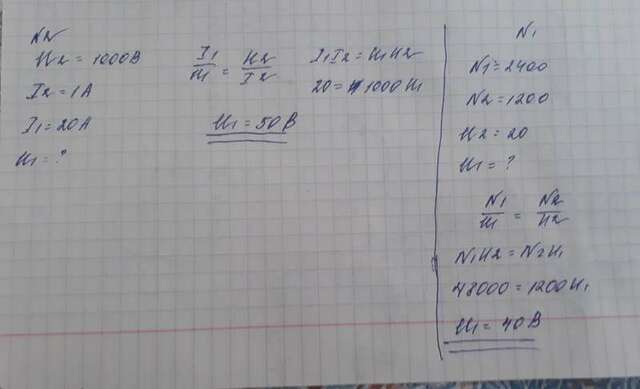 N2
U2 = 1000В
I2 = 1А
I1 = 20А
U1 = ?
I1/U1 = U2/I2
I1I2 = U1U2
20 = 1000U1
U1 = 50В
N1
N1 = 2400
N2 = 1200
U2 = 20
U1 = ?
N1/U1 = N2/U2
N1U2 = N2U1
48000 = 1200U1
U1 = 40В